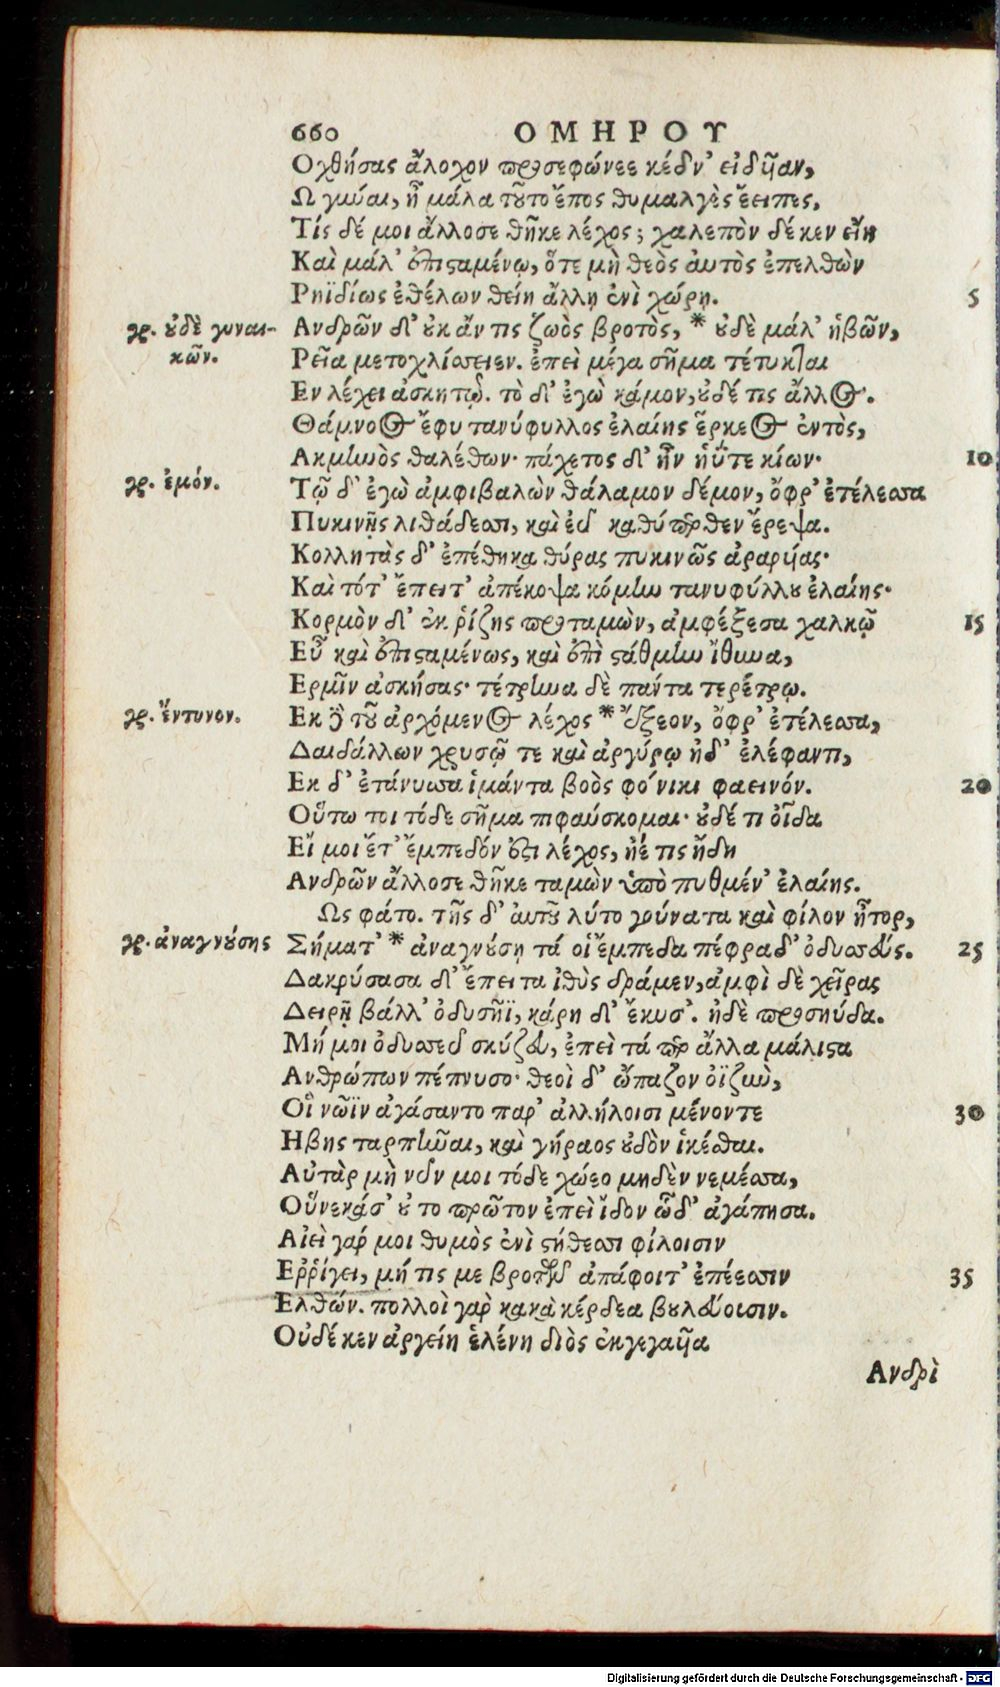 660 ΟΜΗΡΟΥ
Οχθήσας ἄλοχον προσεφώνεε κέδν' εἰδυῖαν,
Ω γύναι, ἦ μάλα τοῦτο ἔπος θυμαλγὲς ἔειπες,
Τίς δέ μοι ἄλλοσε θῆκε λέχος; χαλεπὸν δέ κεν εἴη
Καὶ μάλ' ἐπισταμένῳ, ὅτε μὴ θεὸς αὐτὸς ἐπελθὼν
Ρηϊδίως ἐθέλων θείη ἄλλῃ ἐνὶ χώρῃ. 5
γρ. οὐδὲ γυναι-
κῶν.
Ανδρῶν δ' οὐκ ἄν τις ζωὸς βροτὸς, * οὐδὲ μάλ' ἡβῶν,
Ρεῖα μετοχλίσσειεν. ἐπεὶ μέγα σῆμα τέτυκται
Εν λέχει ἀσκητῷ. τὸ δ' ἐγὼ κάμον, οὐδέ τις ἄλλος.
Θάμνος ἔφυ τανύφυλλος ἐλαίης ἕρκεος ἐντὸς,
Ακμηνὸς θαλέθων· πάχετος δ' ἦν ἠΰτε κίων· 10
γρ. ἐμόν.
Τῷ δ' ἐγὼ ἀμφιβαλὼν θάλαμον δέμον, ὄφρ' ἐτέλεσσα
Πυκινῇς λιθάδεσσι, καὶ εὖ καθύπερθεν ἔρεψα.
Κολλητὰς δ' ἐπέθηκα θύρας πυκινῶς ἀραρυίας·
Καὶ τότ' ἔπειτ' ἀπέκοψα κόμην τανυφύλλου ἐλαίης·
Κορμὸν δ' ἐκ ῥίζης προταμὼν, ἀμφέξεσα χαλκῷ 15
Εὖ καὶ ἐπισταμένως, καὶ ἐπὶ στάθμην ἴθυνα,
Ερμῖν ἀσκήσας· τέτρηνα δὲ πάντα τερέτρῳ.
γρ. ἔντυνον.
Εκ δὲ τοῦ ἀρχόμενος λέχος * ἔξεον, ὄφρ' ἐτέλεσσα,
Δαιδάλλων χρυσῷ τε καὶ ἀργύρῳ ἠδ' ἐλέφαντι,
Εκ δ' ἐτάνυσσα ἱμάντα βοὸς φοίνικι φαεινόν. 20
Οὕτω τοι τόδε σῆμα πιφαύσκομαι· οὐδέ τι οἶδα
Εἴ μοι ἔτ' ἔμπεδόν ἐστι λέχος, ἠέ τις ἤδη
Ανδρῶν ἄλλοσε θῆκε ταμὼν ὑπὸ πυθμέν' ἐλαίης.
Ως φάτο. τῆς δ' αὐτοῦ λύτο γούνατα καὶ φίλον ἦτορ,
γρ. ἀναγνούσης
Σήματ' * ἀναγνούσῃ τά οἱ ἔμπεδα πέφραδ' ὀδυσσεύς. 25
Δακρύσασα δ' ἔπειτα ἰθὺς δράμεν, ἀμφὶ δὲ χεῖρας
Δειρῇ βάλλ' ὀδυσῆϊ, κάρη δ' ἔκυσ'. ἠδὲ προσηύδα.
Μή μοι ὀδυσσεῦ σκύζευ, ἐπεὶ τά περ ἄλλα μάλιστα
Ανθρώπων πέπνυσο· θεοὶ δ' ὤπαζον ὀϊζὺν,
Οἳ νῶϊν ἀγάσαντο παρ' ἀλλήλοισι μένοντε 30
Ηβης ταρπῆναι, καὶ γήραος οὐδὸν ἱκέσθαι.
Αὐτὰρ μὴ νῦν μοι τόδε χώεο μηδὲν νεμέσσα,
Οὕνεκά σ' οὐ το πρῶτον ἐπεὶ ἴδον ὧδ' ἀγάπησα.
Αἰεὶ γάρ μοι θυμὸς ἐνὶ στήθεσσι φίλοισιν
Εῤῥίγει, μή τις με βροτῶν ἀπάφοιτ' ἐπέεσσιν 35
Ελθών. πολλοὶ γὰρ κακὰ κέρδεα βουλεύοισιν.
Οὐδέ κεν ἀργείη ἑλένη διὸς ἐκγεγαυῖα
Ανδρὶ
Digitalisierung gefördert durch die Deutsche Forschungsgemeinschaft - DFG